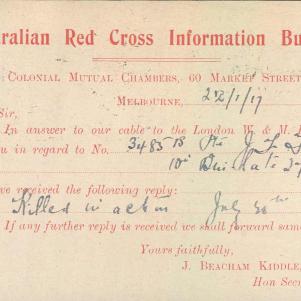 ralian Red Cross Information Bu
: Colonial Mutual Chambers, 60 Market Street
Melbourne, 22/1/17
Sir,
In answer to our cable to the London W. & M. D
u in regard to No. 3483 Pte J. L.
10
ve received the following reply:
Killed in action July 30th
If any further reply is received we shall forward same
Yours faithfully,
J. BEACHAM KIDDLE
Hon Sec